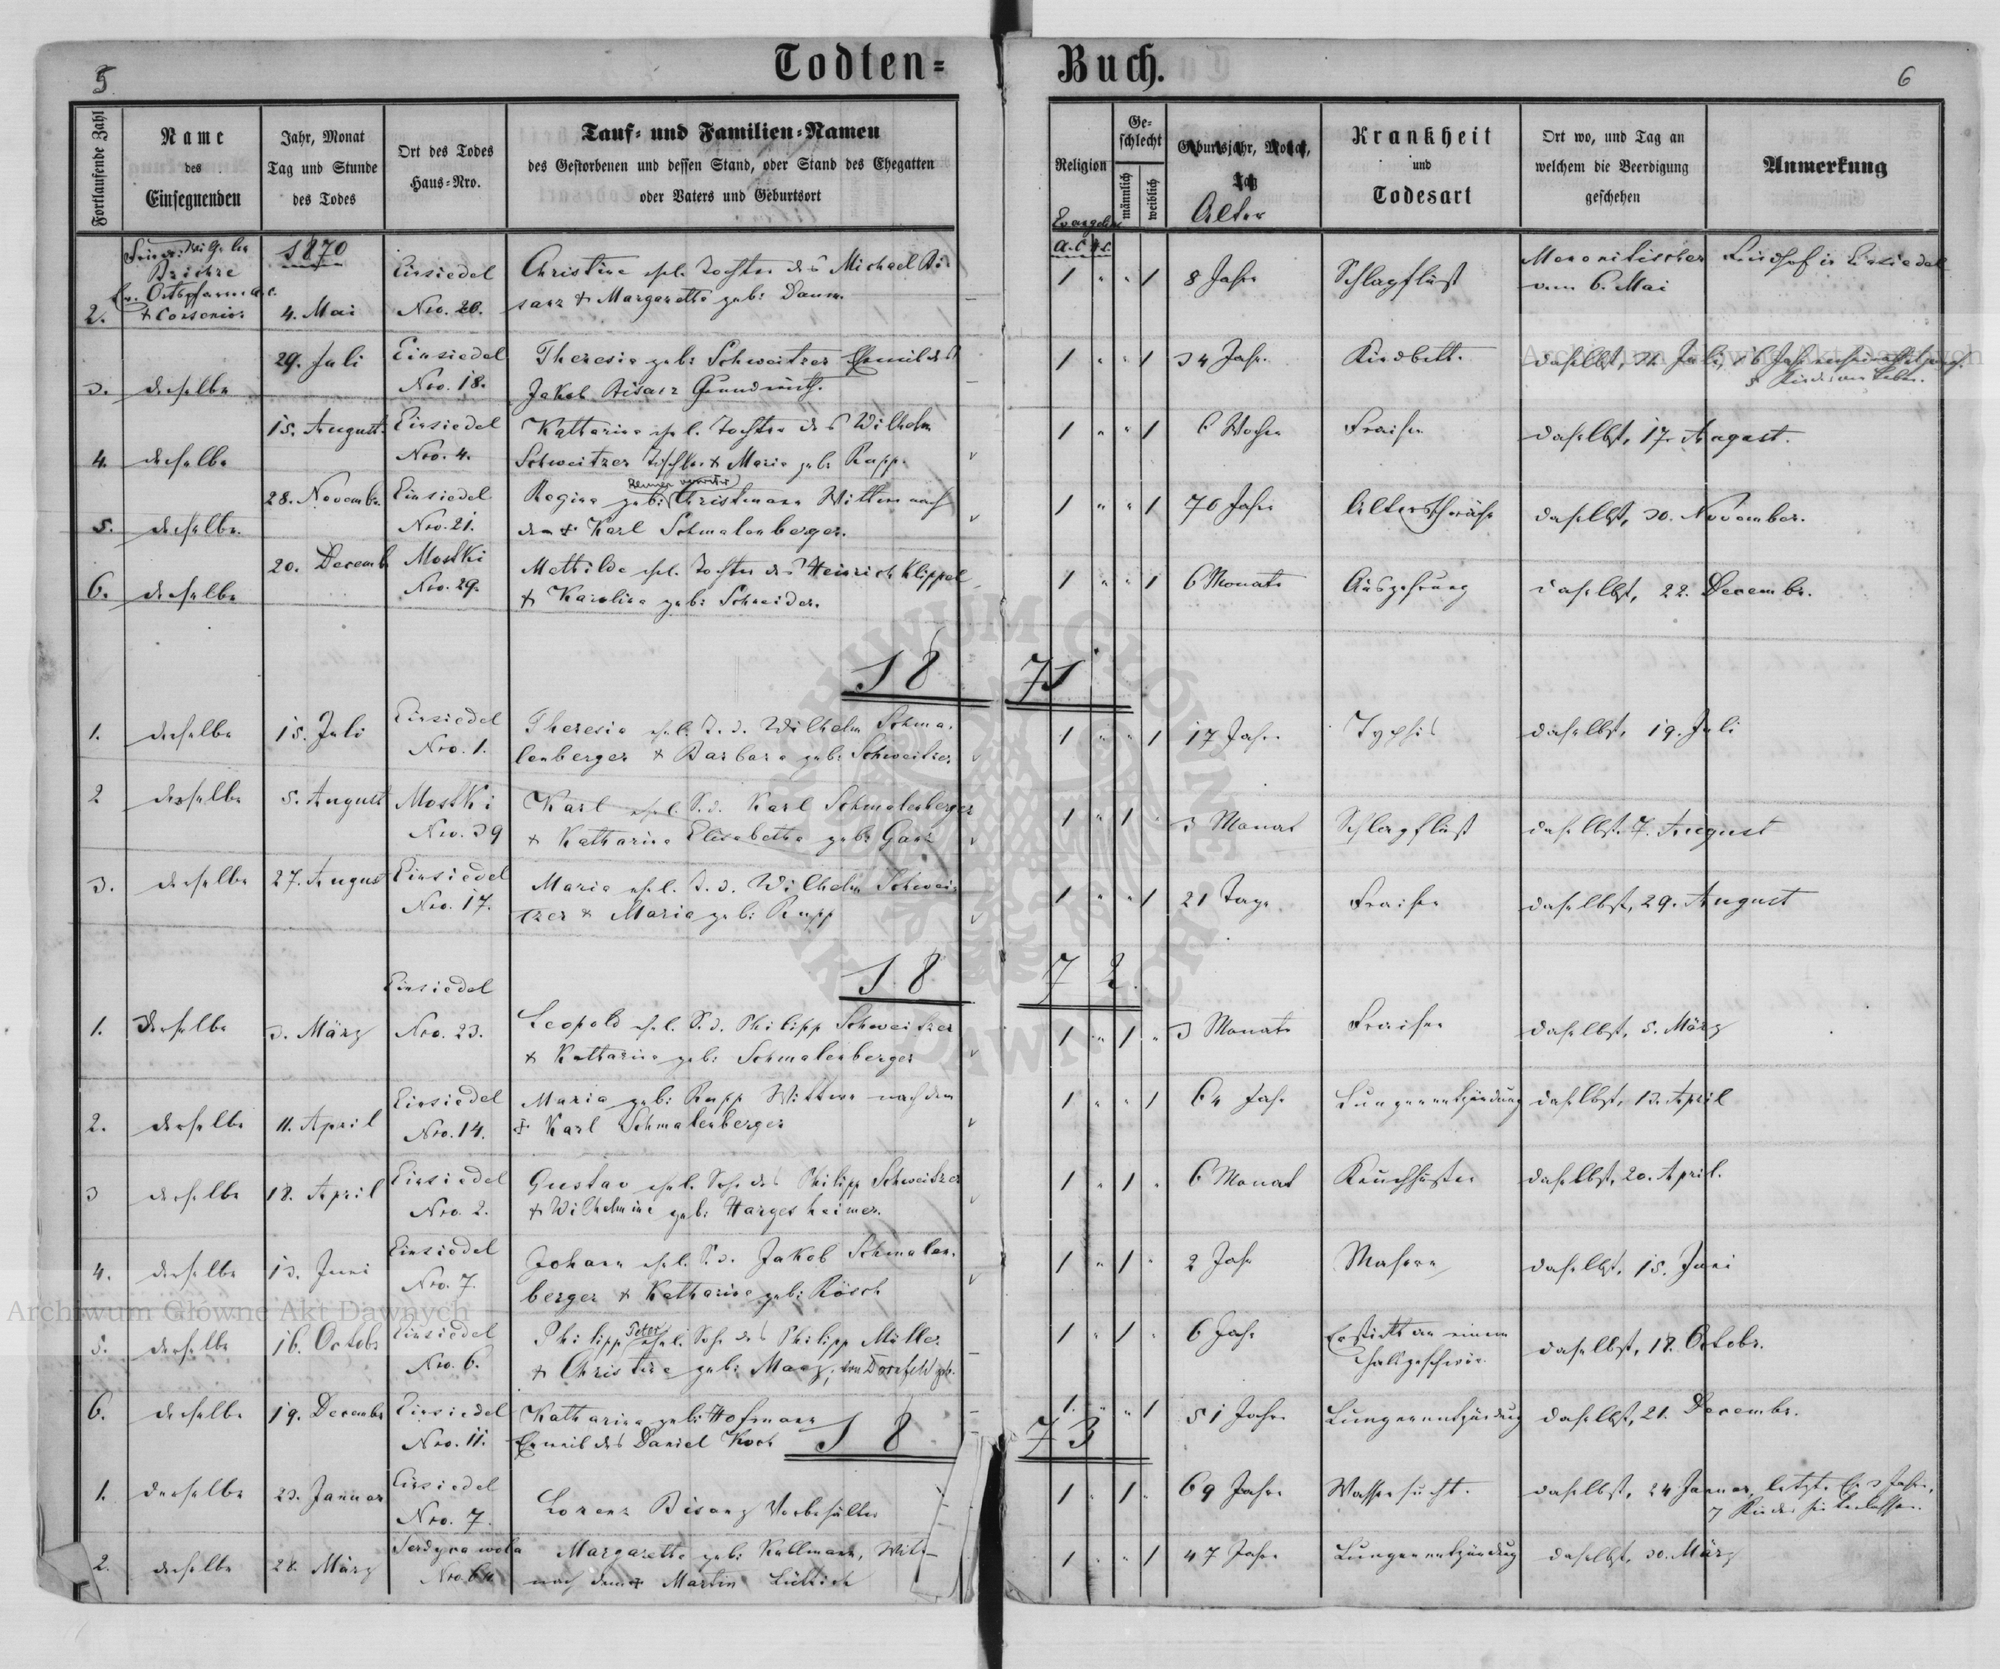 5
Todten=
Buch.
6
Fortlaufende Zahl
Name
des
Einsegnenden
Jahr, Monat
Tag und Stunde
des Todes
Ort des Todes
Haus=Nro.
Tauf= und Familien=Namen
des Gestorbenen und dessen Stand, oder Stand des Ehegatten
oder Vaters und Geburtsort
Religion
Ge=
schlecht
männlich
weiblich
Geburtsjahr, Monat,
Tag
Alter
Krankheit
und
Todesart
Ort wo, und Tag an
welchem die Beerdigung
geschehen
Anmerkung
1870
2. 4. Mai Einsiedel Nro. 20.
Christine ehl. Tochter des Michael Bi-
sanz & Margaretha geb: Daum
1 " " 1 8 Jahre Schlagfluß
Menonitischer Friedhof in Einsiedel
vom 6. Mai
3. derselbe 29. Juli Einsiedel Nro. 18.
Theresia geb: Schweitzer Eheweib des
Jakob Bisanz Grundwirth.
1 " " 1 34 Jahr. Kindbett. daselbst, 31. Juli,
4. derselbe 15. August. Einsiedel Nro. 4.
Katharina ehel. Tochter des Wilhelm
Schweitzer Tischler & Maria geb: Rupp.
1 " " 1 6 Wochen Fraisen daselbst, 17. August.
5. derselbe. 28. Novembr. Einsiedel Nro. 21.
Regina geb: Christmann Wittwe nach
dem Karl Schmalenberger.
1 " " 1 70 Jahre Altersschwäche daselbst, 30. November.
6. derselbe 20. Decemb. Mostki Nro. 29.
Mathilde ehl. Tochter des Heinrich Klippel
& Karolina geb: Schneider.
1 " " 1 6 Monate Auszehrung daselbst, 22. Decembr.
1871
1. derselbe 15. Juli Einsiedel Nro. 1.
Theresia ehl. T. d. Wilhelm Schma-
lenberger & Barbara geb: Schweitzer
1 " " 1 17 Jahre Typhus daselbst, 19. Juli
2 derselbe 5. August Mostki Nro. 39
Karl ehel. S. d. Karl Schmalenberger
& Katharina Elisabetha geb:
1 " 1 3 Monat Schlagfluß daselbst. 7. August
3. derselbe 27. August Einsiedel Nro. 17.
Maria ehel. T. d. Wilhelm Schwei-
tzer & Maria geb: Rupp
1 " " 1 21 Tage Fraisen daselbst, 29. August
1872.
1. Derselbe 3. März Einsiedel Nro. 23.
Leopold ehl. S. d. Philipp Schweitzer
& Katharina geb: Schmalenberger
1 " 1 " 3 Monate Fraisen daselbst, 5. März
2. derselbe 11. April Einsiedel Nro. 14.
Maria geb: Rupp Wittwe nach dem
Karl Schmalenberger
1 " " 1 64 Jahr Lungenentzündung daselbst, 13. April
3 derselbe 18. April Einsiedel Nro. 2.
Gustav ehl. Sohn des Philipp Schweitzer
& Wilhelmine geb: Hargesheimer.
1 " 1 " 6 Monat Keuchhusten daselbst, 20. April.
4. derselbe 13. Juni Einsiedel Nro. 7.
Johann ehl. S. d. Jakob Schmalen-
berger & Katharina geb: Rösch
1 " 1 " 2 Jahr Masern daselbst, 15. Juni
5. derselbe 16. Octobr Einsiedel Nro. 6.
Philipp Peter ehl. Sohn des Philipp Müller
& Christine geb: von Dornfeld geb.
1 " 1 " 6 Jahr Erstickt an einem
Halsgeschwür daselbst, 18. Octobr.
6. derselbe 19. Decembr Einsiedel Nro. 11.
Katharina geb: Hofmann
Eheweib des Daniel Koch
1. " " 1 51 Jahre Lungenentzündung daselbst, 21. Decembr.
1873
1. derselbe 23. Januar Einsiedel Nro. 7.
Lorenz Bisanz Vorbehälter
1 " 1 " 69 Jahre Wassersucht. daselbst, 24 Januar, letzte Ehe 3 Jahre,
7 Kinder hinterlassen.
2. derselbe 28. März
Margaretha geb: Kullmann, Witwe
nach dem Martin
1 " " 1 47 Jahre Lungenentzündung daselbst, 30. März
ARCHIWUM GŁÓWNE AKT DAWNYCH
Archiwum Główne Akt Dawnych
Archiwum Główne Akt Dawnych